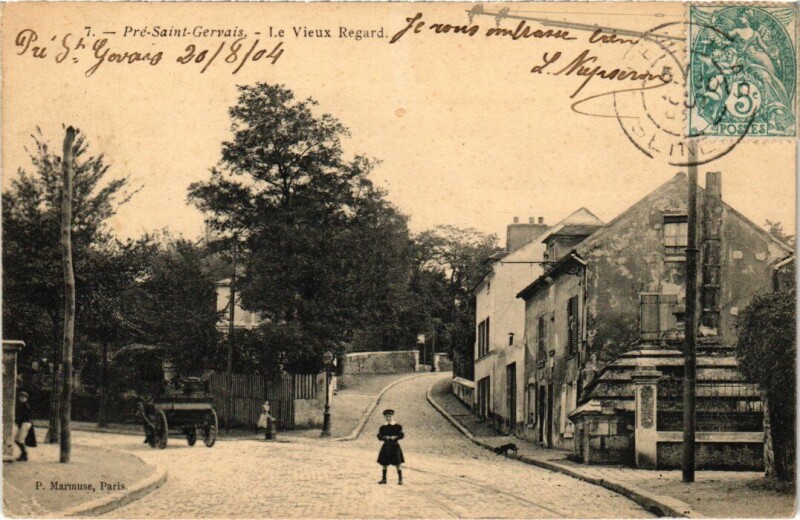 7. — Pré-Saint-Gervais. - Le Vieux Regard.
Pré St Gervais 20/8/04
Je vous embrasse bien
5c
POSTES
SEINE
P. Marmuse, Paris.